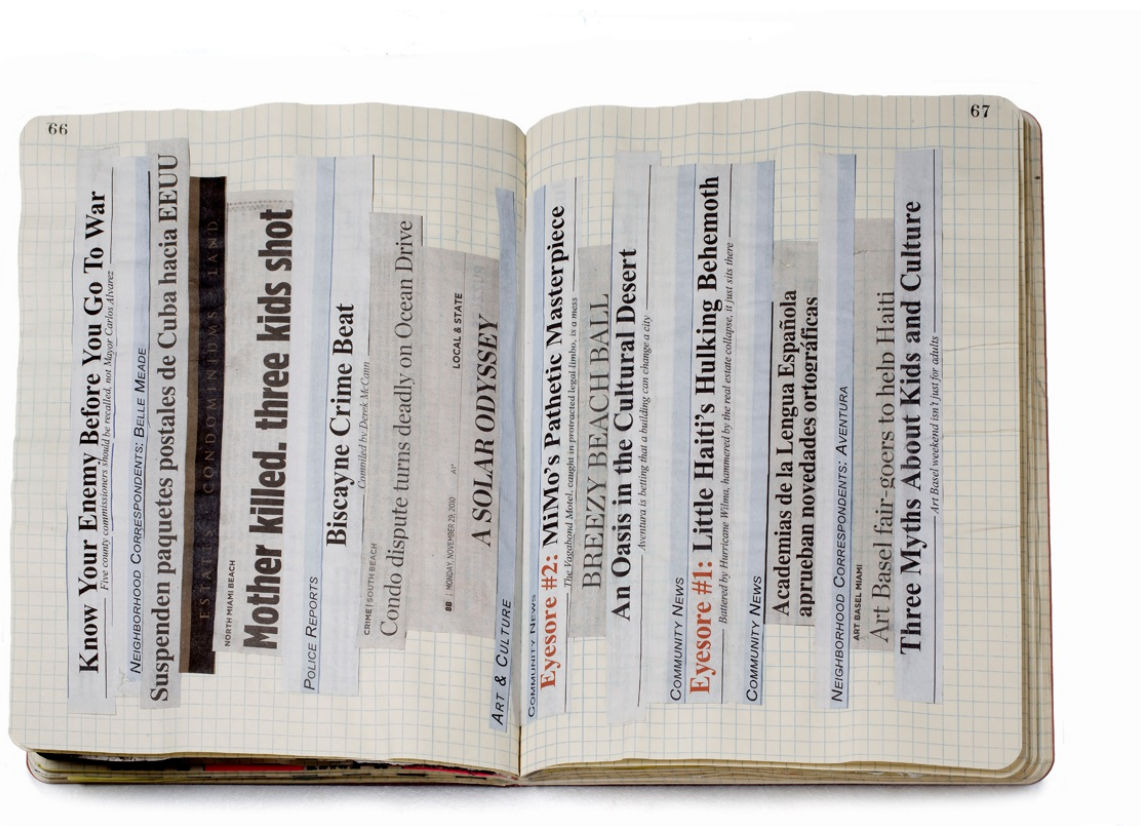 66
Know Your Enemy Before You Go To War
Five county commissioners should be recalled, not Mayor Carlos Alvarez
NEIGHBORHOOD CORRESPONDENTS: BELLE MEADE
Suspenden paquetes postales de Cuba hacia EEUU
ESTATES CONDOMINIUMS LAND
NORTH MIAMI BEACH
Mother killed. three kids shot
POLICE REPORTS
Biscayne Crime Beat
Compiled by Derek McCann
CRIME | SOUTH BEACH
Condo dispute turns deadly on Ocean Drive
8B | MONDAY, NOVEMBER 29, 2010
LOCAL & STATE
A SOLAR ODYSSEY
ART & CULTURE
67
COMMUNITY NEWS
Eyesore #2: MiMo's Pathetic Masterpiece
The Vagabond Motel, caught in protracted legal limbo, is a mess
BREEZY BEACH BALL
An Oasis in the Cultural Desert
Aventura is betting that a building can change a city
COMMUNITY NEWS
Eyesore #1: Little Haiti's Hulking Behemoth
Battered by Hurricane Wilma, hammered by the real estate collapse, it just sits there
COMMUNITY NEWS
Academias de la Lengua Española
aprueban novedades ortográficas
NEIGHBORHOOD CORRESPONDENTS: AVENTURA
ART BASEL MIAMI
Art Basel fair-goers to help Haiti
Three Myths About Kids and Culture
Art Basel weekend isn't just for adults